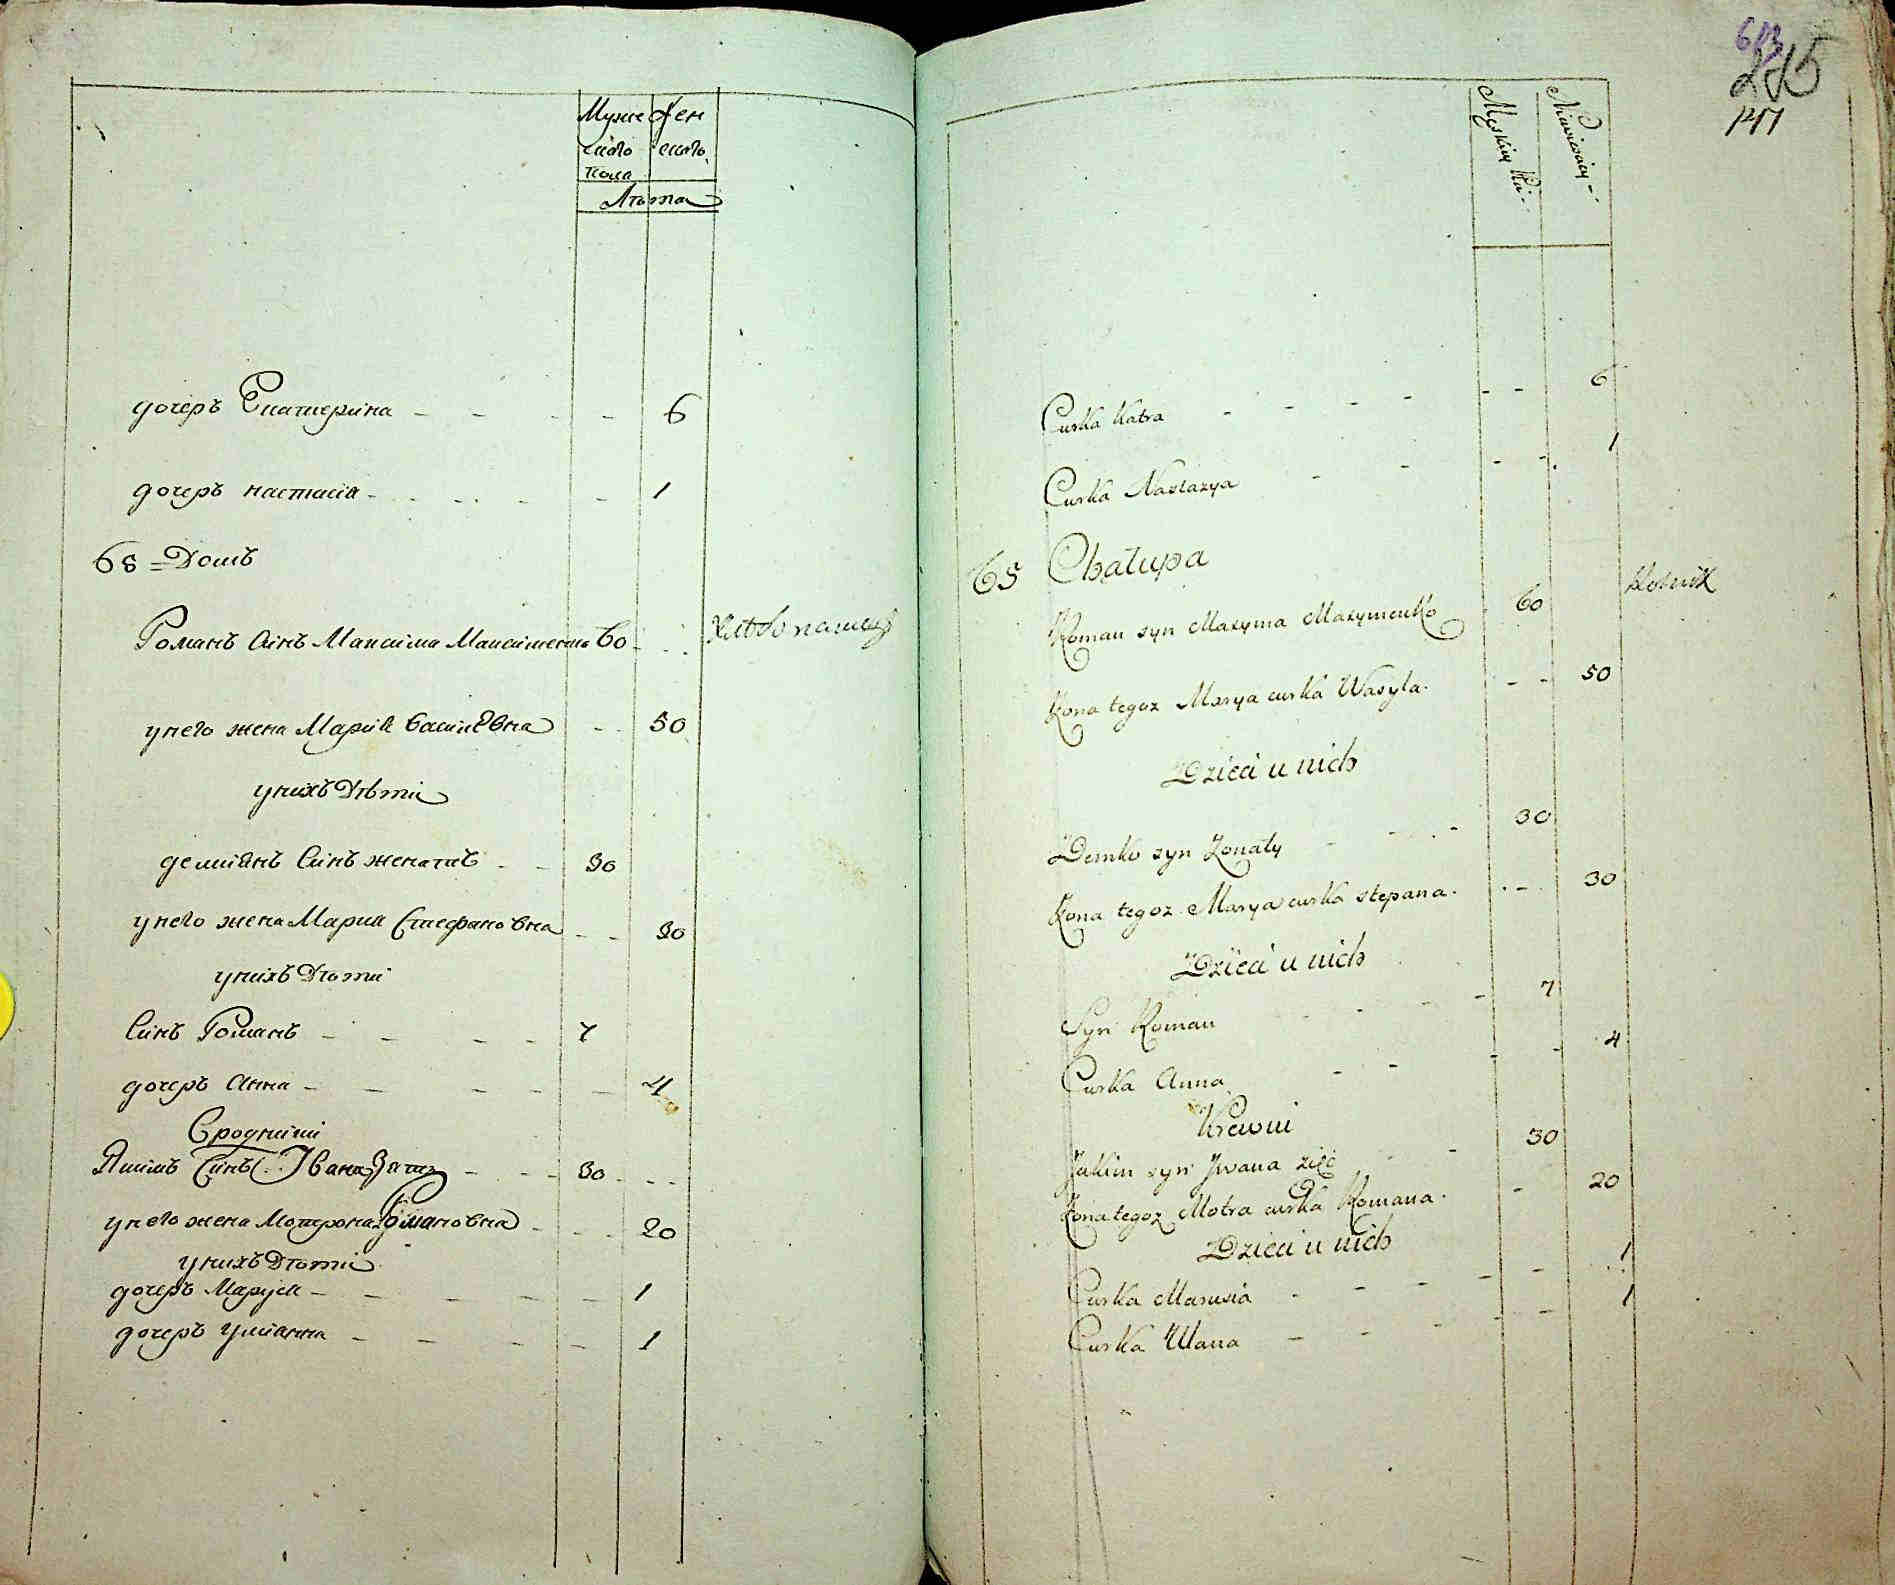 Муже Жен
ского ского
пола
Лѣта
дочеръ Екатерина - - - - 6
дочеръ настасіа - - - - 1
68 = Домъ
Романъ Синъ Максима 60
унего жена Марія василЕвна - - 50
унихъ Дѣти
деміянъ Синъ женатиъ - - 30
унего жена Мария Стефановна - - 30
унихъ Дѣти
Синъ Романъ - - - - 7
дочеръ Анна - - - - - 4
Сродники
Якимъ Синъ Івана Зять - - - 30
унего жена Мотрона Романовна - - - 20
унихъ Дѣти
дочеръ Маруся - - - - - 1
дочеръ улианна - - - - 1
275
Męskiey
Curka Katra - - - - - - 6
Curka Nastazya - - - - 1
65 Chałupa
Roman syn Maxyma Maxymenko 60 Rolnik
Żona tegoż Marya curka Wasyla. - - 50
Dzieci u nich
Demko syn Żonaty - - - - 30
Żona tegoż Marya curka stepana. - - 30
Dzieci u nich
Syn Roman - - - - 7
Curka Anna - - - - 4
Krewni
Jakim syn Jwana zięć - - 30
Żona tegoż Motra curka Romana. - 20
Dzieci u nich
Curka Marusia - - - - - 1
Curka Ulana - - - - - - 1